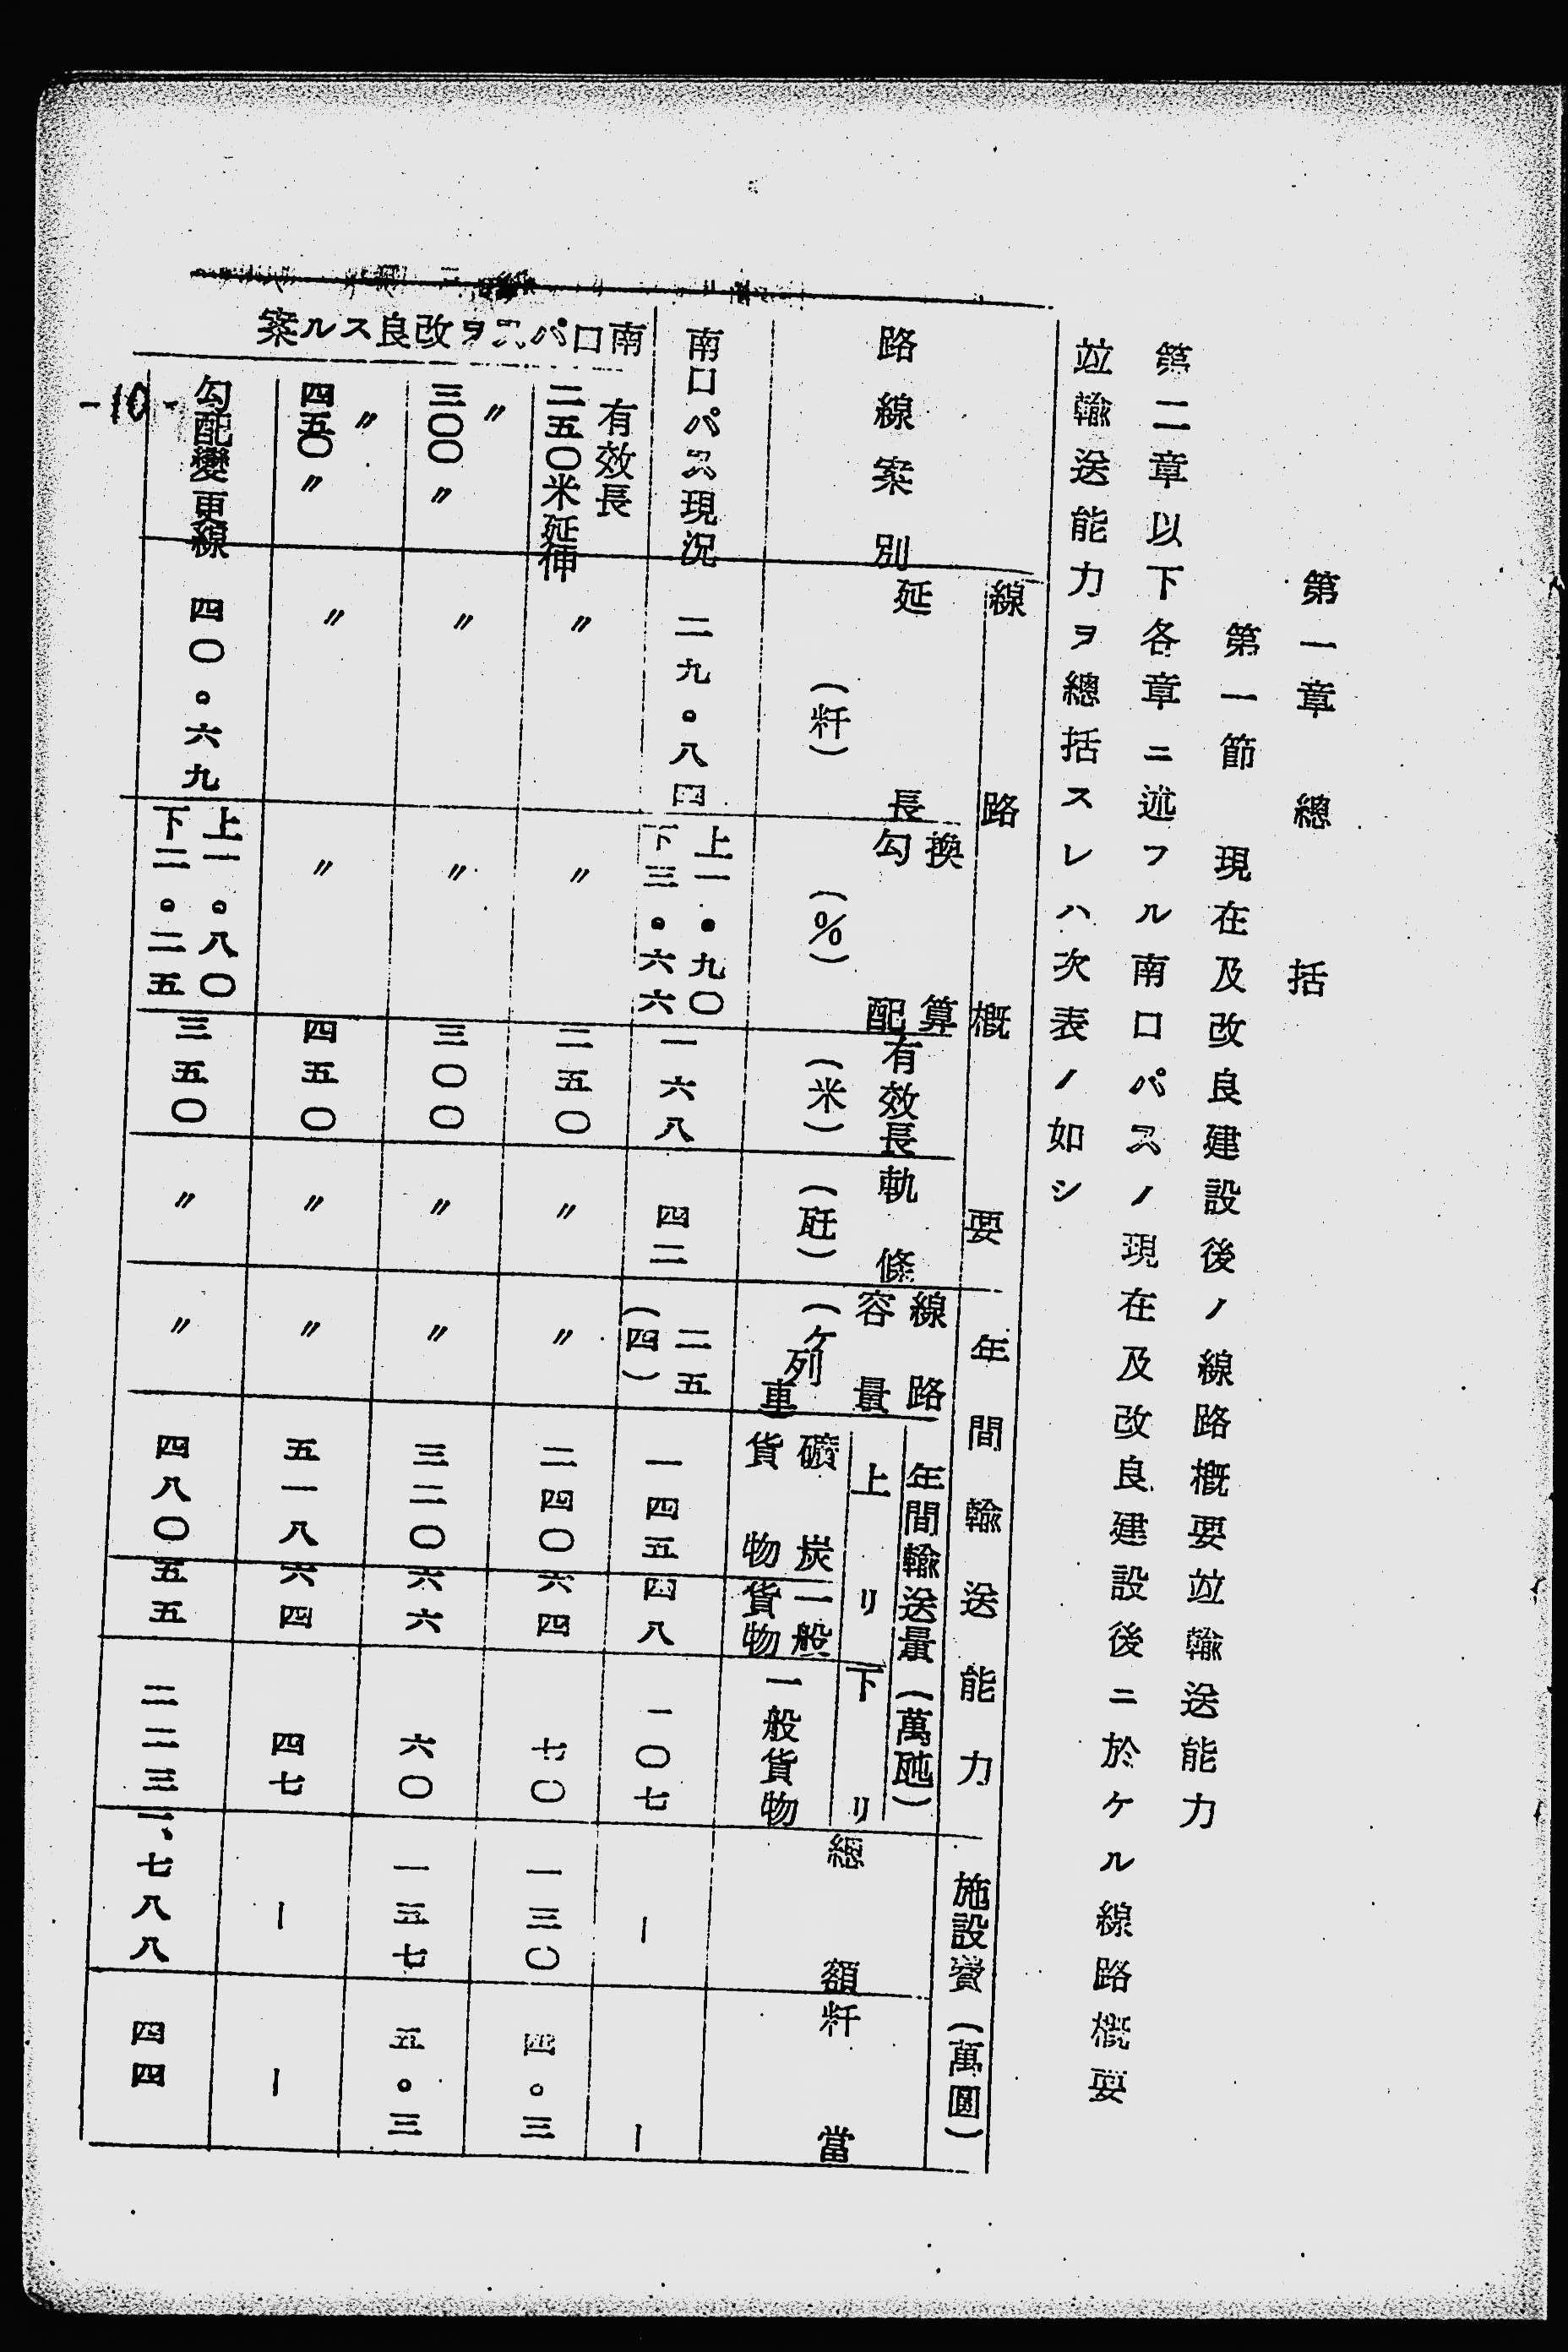 第一章　總　括
第一節　現在及改良建設後ノ線路概要竝輸送能力
第二章以下各章ニ述フル南口パスノ現在及改良建設後ニ於ケル線路概要
竝輸送能力ヲ總括スレハ次表ノ如シ
路線案別
線路概要
延長（粁）
換算勾配（％）
有效長（米）
軌條（瓩）
年間輸送能力
線路容量（ケ列車）
年間輸送量（萬瓲）
上リ
礦炭貨物
一般貨物
下リ
一般貨物
施設費（萬圓）
總額
粁當
南口パス現況
二九。八四
上一。九〇
下三。六六
一六八
四二
二五
（四）
一四五
四八
一〇七
—
—
南口パスヲ改良スル案
有效長
二五〇米延伸
〃
〃
二五〇
〃
〃
二四〇
六四
七〇
一三〇
四。三
〃
三〇〇〃
〃
〃
三〇〇
〃
〃
三二〇
六六
六〇
一五七
五。三
〃
四五〇〃
〃
〃
四五〇
〃
〃
五一八
六四
四七
—
—
勾配變更線
四〇。六九
上一。八〇
下二。二五
三五〇
〃
〃
四八〇
五五
二二三
一、七八八
四四
-10-